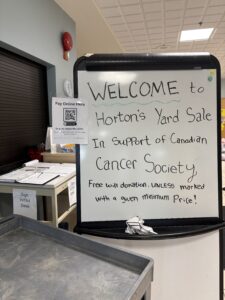 WELCOME to
Horton's Yard Sale
In Support of Canadian
Cancer Society
Free will donation. UNLESS marked
with a given minimum Price!
Pay Online Here